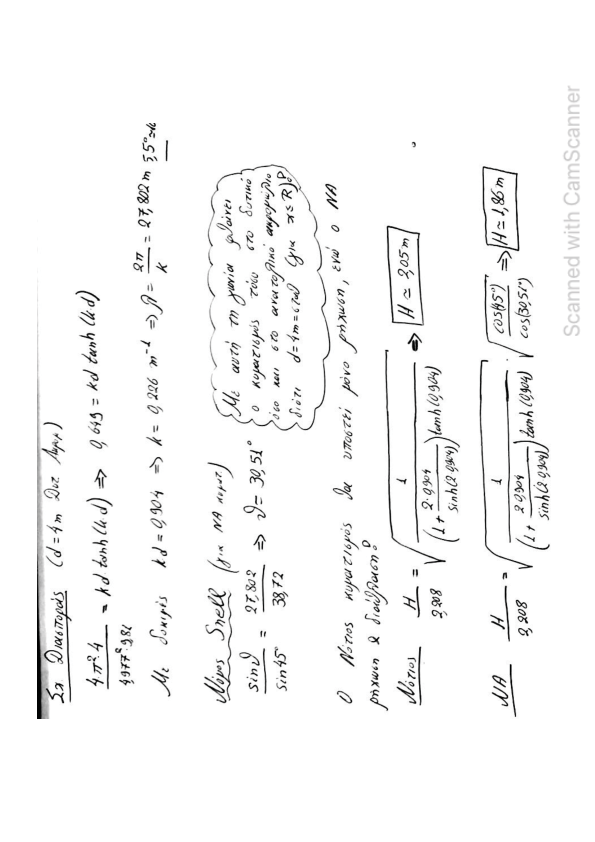 Σχ. Διασποράς (d=4m Δυτ. Λιμεν)
4π²·4 / 4,977²·9,81 = kd tanh(kd) ⇒ 0,649 = kd tanh(kd)
Με δοκιμές kd=0,904 ⇒ k = 0,226 m⁻¹ ⇒ λ = 2π/k = 27,802 m
Νόμος Snell (για ΝΑ κυματ.)
sinθ / sin45° = 27,802 / 38,72 ⇒ θ = 30,51°
Με αυτή τη γωνία φθάνει
ο κυματισμός τόσο στο δυτικό
όσο και στο ανατολικό ακρομώλιο
διότι d=4m=σταθ (για
Ο Νότιος κυματισμός θα υποστεί μόνο ρήχωση, ενώ ο ΝΑ
ρήχωση & διάθλαση:
Νότιος H / 2,208 = √(1 / ((1 + 2·0,904 / sinh(2·0,904)) tanh(0,904))) ⇒ H ≃ 2,05 m
ΝΑ H / 2,208 = √(1 / ((1 + 2·0,904 / sinh(2·0,904)) tanh(0,904))) · √(cos(45°) / cos(30,51°)) ⇒ H ≃ 1,86 m
Scanned with CamScanner